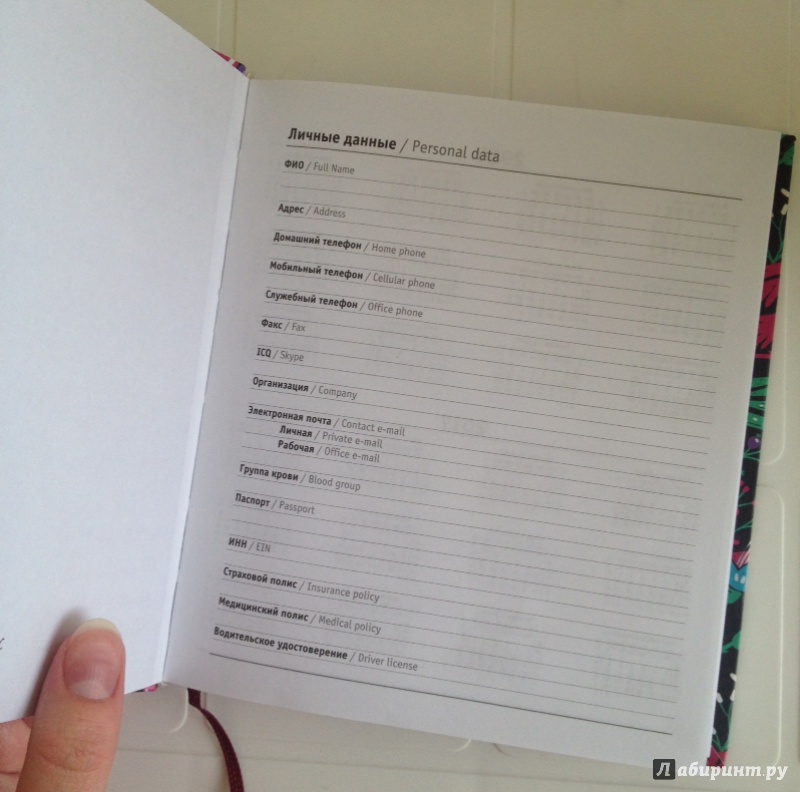 Личные данные / Personal data
ФИО / Full Name
Адрес / Address
Домашний телефон / Home phone
Мобильный телефон / Cellular phone
Служебный телефон / Office phone
Факс / Fax
ICQ / Skype
Организация / Company
Электронная почта / Contact e-mail
Личная / Private e-mail
Рабочая / Office e-mail
Группа крови / Blood group
Паспорт / Passport
ИНН / EIN
Страховой полис / Insurance policy
Медицинский полис / Medical policy
Водительское удостоверение / Driver license
Лабиринт.ру